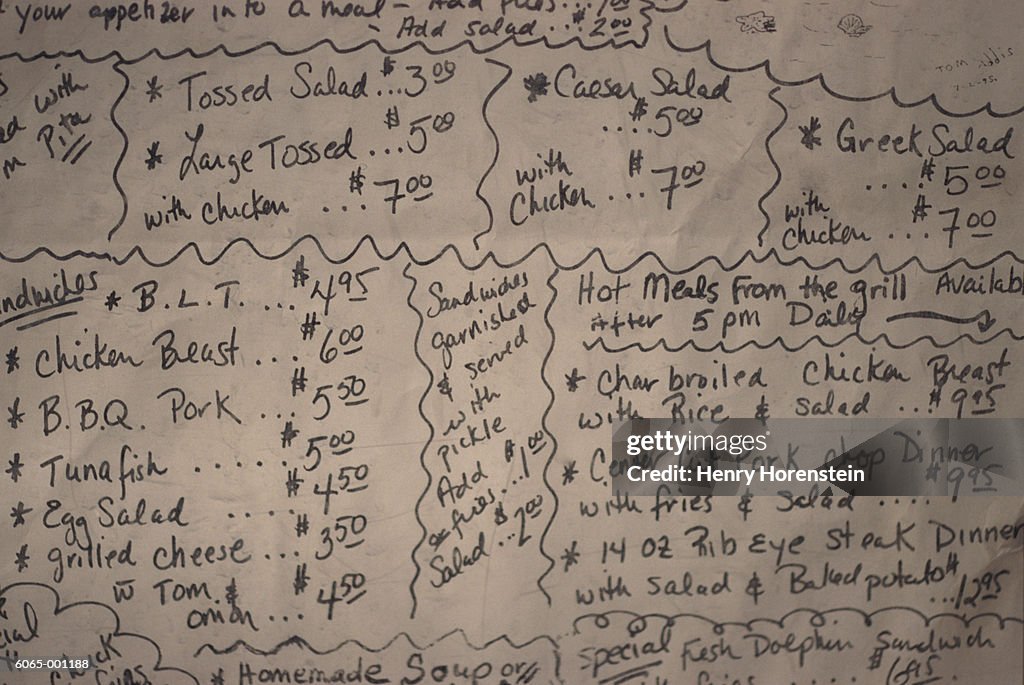 your appetizer into a meal - Add fries... $1.00
- Add salad ... $2.00
with
Pita
* Tossed Salad ... $3.00
* Large Tossed ... $5.00
with chicken ... $7.00
* Caesar Salad
.... $5.00
with
chicken ... $7.00
Tom Addis
* Greek Salad
.... $5.00
with
chicken ... $7.00
* B.L.T. ... $4.95
* Chicken Beast ... $6.00
* B.B.Q. Pork ... $5.50
* Tunafish ..... $5.00
* Egg Salad ..... $4.50
* grilled cheese ... $3.50
w Tom. &
onion ... $4.50
Sandwiches
garnished
&
served
with
pickle
Add
fries ... $1.00
or
Salad ... $2.00
Hot Meals From the grill Availab
After 5 pm Daily
* Char broiled Chicken Breast
with Rice & salad ... $9.95
* Center Cut Pork Chop Dinner
with fries & Salad .... $9.95
* 14 oz Rib Eye Steak Dinner
with salad & Baked potato
... $12.95
* Homemade Soup or
Special Fresh Dolphin Sandwich
gettyimages®
Henry Horenstein
6065-001188